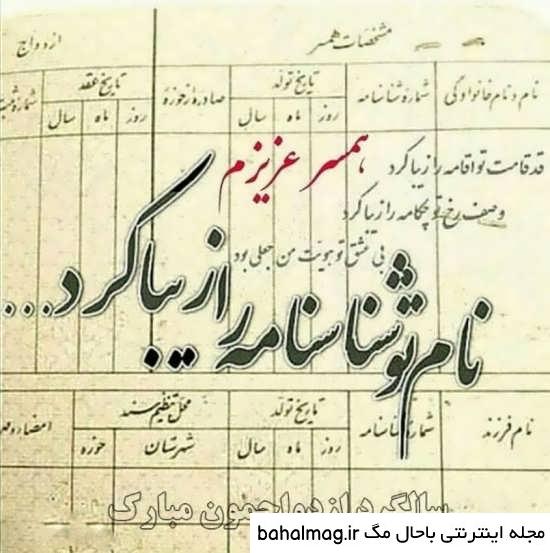 مشخصات همسر
ازدواج
نام و نام خانوادگی
شماره شناسنامه
تاریخ تولد
روز ماه سال
صادره از حوزه
تاریخ عقد
روز ماه سال
همسر عزیزم
قد قامت تو اقامه را زیبا کرد
وصف رخ تو چکامه را زیبا کرد
بی عشق تو هویت من جعلی بود
نام تو شناسنامه را زیبا کرد...
نام فرزند
شماره شناسنامه
تاریخ تولد
روز ماه سال
محل تنظیم سند
شهرستان حوزه
سالگرد ازدواجمون مبارک
مجله اینترنتی باحال مگ bahalmag.ir